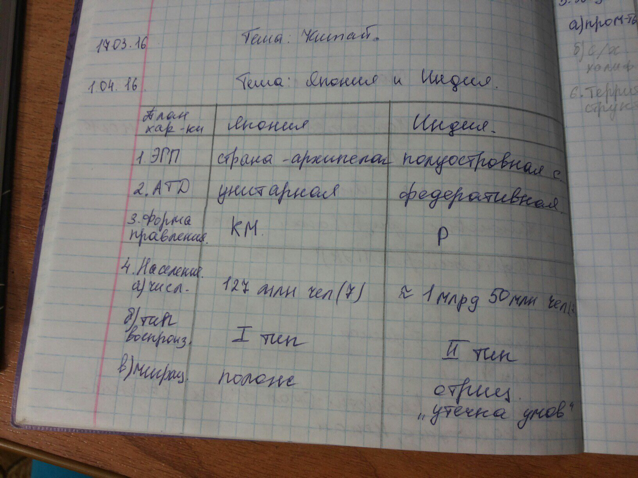 17.03.16 Тема: Китай.
1.04.16 Тема: Япония и Индия.
План хар-ки Япония Индия.
1. ЭГП страна-архипелаг полуостровная с.
2. АТД унитарная федеративная
3. Форма правления. КМ Р
4. Население
а) числ. 127 млн чел (7) ≈ 1 млрд 50 млн чел
б) тип воспроиз. I тип II тип
в) миграц полож отриц.
„утечка умов"
а) пром-ть
б) с/х